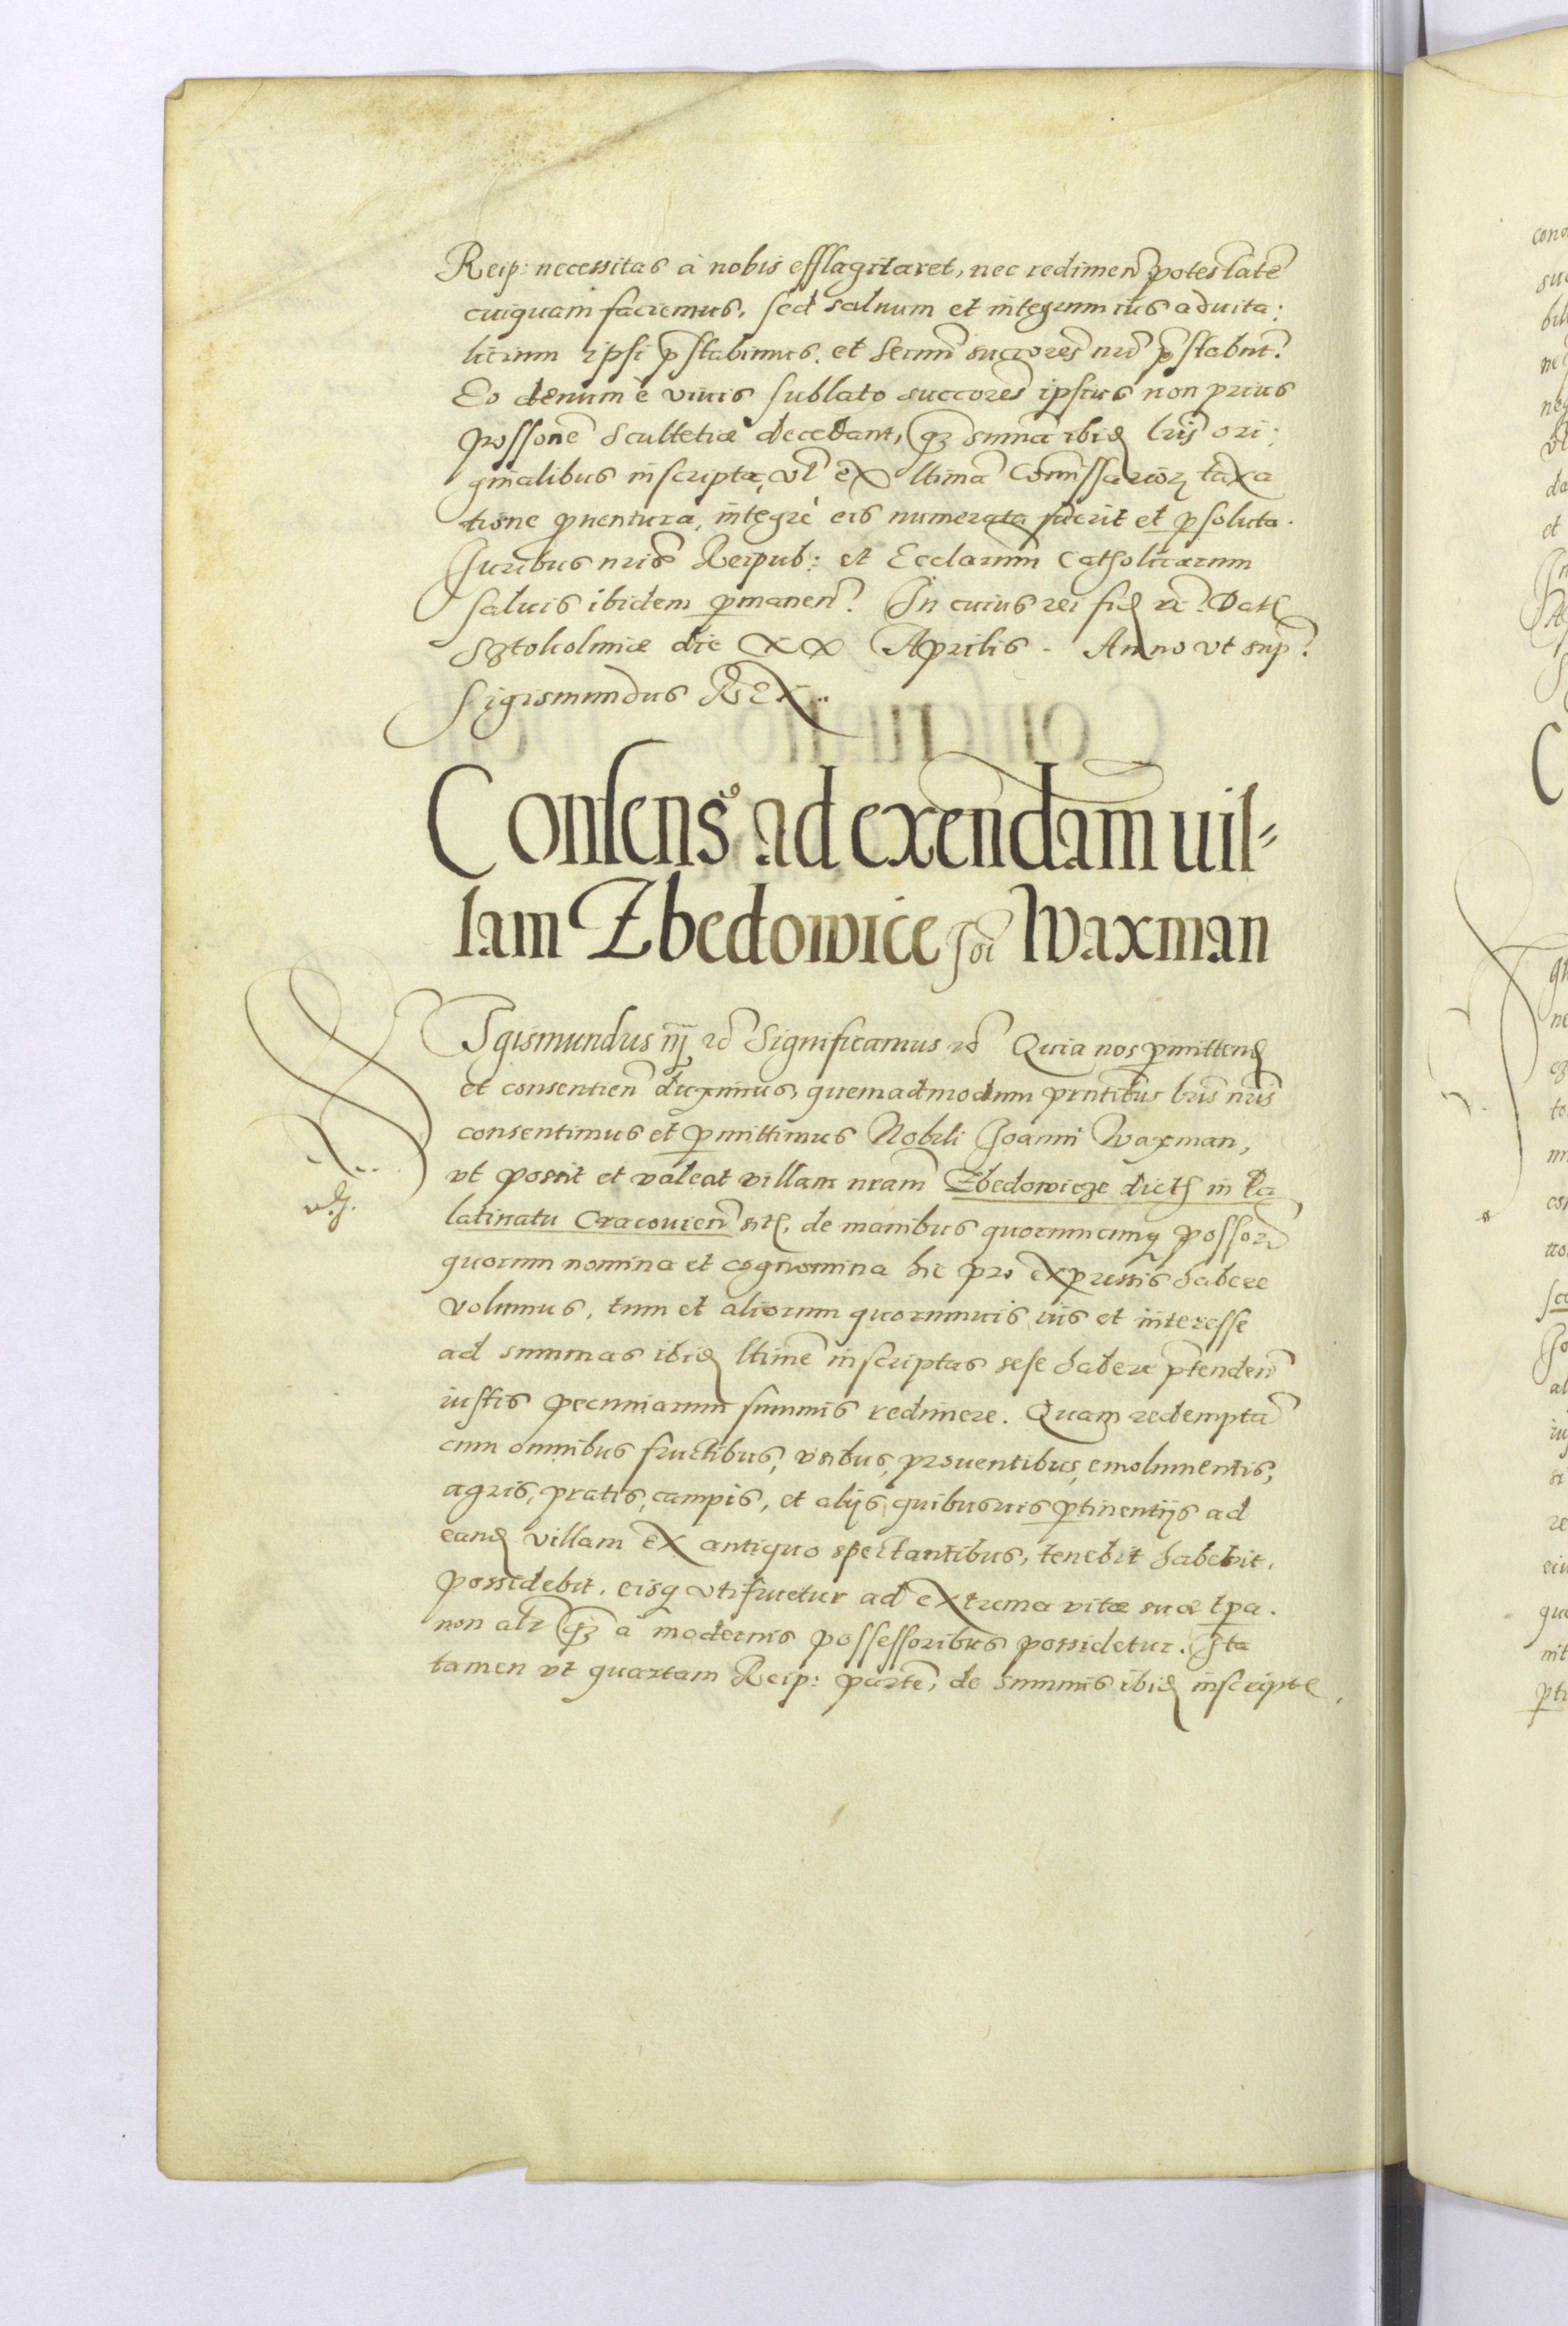 Reip: necessitas à nobis efflagitaret, nec redimen̄ potestatē
cuiquam faciemus, sed saluum et integrum ius aduita:
licium ipsi p̄stabimus, et sermī succores nri p̄stabūt.
Eo demum è viuis sublato succores ipsius non prius
possone scultetiæ decedant, qz summa ibid lris ori:
ginalibus inscripta, vl ex ltima Comissarior taxa
tione puentura, integrè eis numerata fuerit et psoluta.
Juribus nris Reipub: et Ecclarum Catholicarum
saluis ibidem pmanen. In cuius rei fid rc. Dat
Sztokolmiæ die XX Aprilis. Anno vt sup.
Sigismundus REX..
Consens9 ad exendam uil=
lam Zbedowice Joī Waxman
SIgismundus iij rc Significamus rc Quia nos pmittend
et consentien duximus, quemadmodum prntibus lris nris
consentimus et pmittimus Nobili Joanni Waxman,
vt possit et valeat villam nram Zbedowicze dict in Pa
latinatu Cracouien sit, de manibus quorumcunq possor
quorum nomina et cognomina hic pro expressis habere
volumus, tum et aliorum quorumuis ius et interesse
ad summas ibid ltime inscriptas sese habere ptenden
iustis pecuniarum summis redimere. Quam redemptā
cum omnibus fructibus, vsibus, prouentibus, emolumentis,
agris, pratis, campis, et alijs quibusuis ptinentijs ad
eand villam ex antiquo spectantibus, tenebit habebit,
possidebit, eisq vtifruetur ad extrema vitæ suæ tpa.
non alr qz à modernis possessoribus possidetur. Ita
tamen vt quartam Reip: partē, de summis ibid inscript